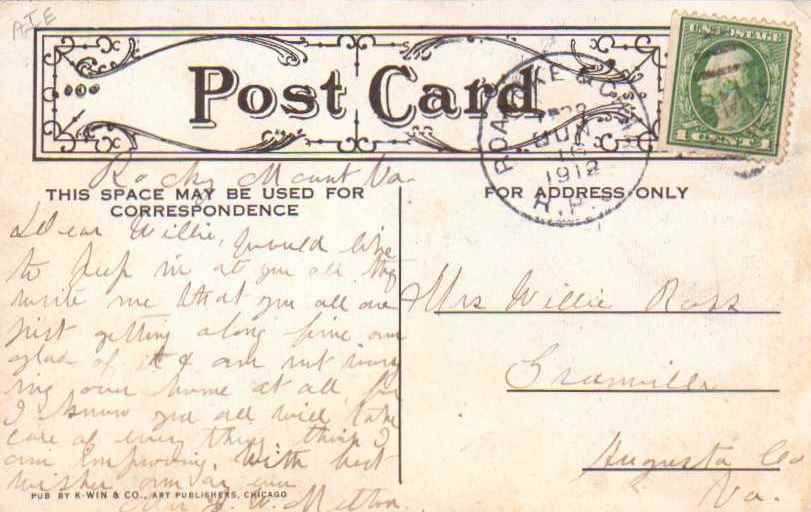 Post Card
U.S. POSTAGE
1 CENT 1
ROANOKE &
JUN
1912
R.P.
Rocky Mount Va.
THIS SPACE MAY BE USED FOR
CORRESPONDENCE
FOR ADDRESS ONLY
Dear Willie, Would like
to peep in at you all they
write me that you all are
just getting along fine am
glad of it & am not worry
ing over home at all, for
I know you all will take
care of every thing think I
am improving. With best
wishes am as ever
Melton.
Mrs Willie Ross
Granville
Augusta Co
Va.
PUB BY K-WIN & CO., ART PUBLISHERS, CHICAGO